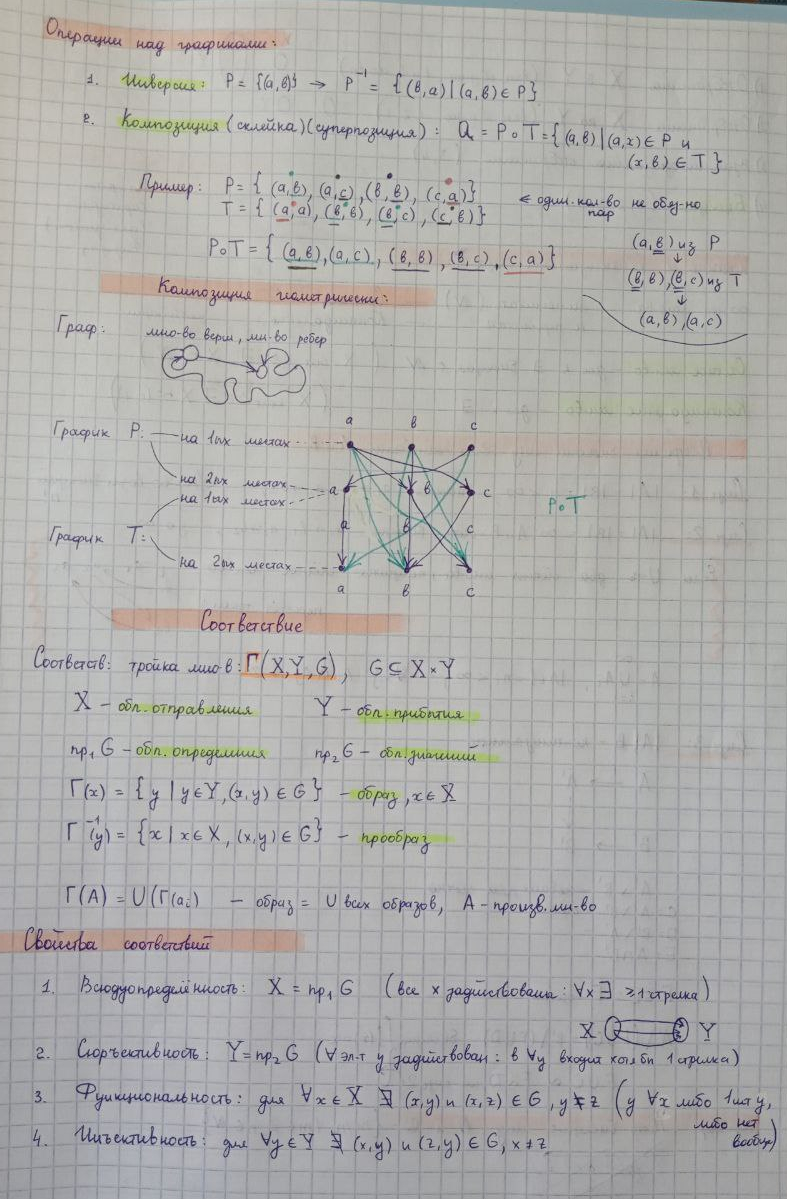 Операции над графиками:
1. Инверсия: P = {(a,в)} → P⁻¹ = {(в,a) | (a,в) ∈ P}
2. Композиция (склейка)(суперпозиция): Q = P∘T = {(a,в) | (a,x) ∈ P и
(x,в) ∈ T}
Пример: P = {(a,в), (a,c), (в,в), (c,a)}
T = {(a,a), (в,в), (в,c), (c,в)}
← один. кол-во не обяз-но
пар
P∘T = {(a,в), (a,c), (в,в), (в,c), (c,a)}
(a,в) из P
↓
(в,в), (в,c) из T
↓
(a,в), (a,c)
Композиция геометрически:
Граф: мно-во верш, мн-во ребер
a в c
График P: на 1ых местах
на 2ых местах
a в c
на 1ых местах
P∘T
a в c
График T: на 2ых местах
a в c
Соответствие
Соответств: тройка мно-в: Г(X,Y,G), G ⊆ X×Y
X – обл. отправления Y – обл. прибытия
пр₁ G – обл. определения пр₂ G – обл. значений
Г(x) = {y | y∈Y, (x,y) ∈ G} – образ, x∈X
Г⁻¹(y) = {x | x∈X, (x,y) ∈ G} – прообраз
Г(A) = U(Г(aᵢ) – образ = U всех образов, A – произв. мн-во
Свойства соответствий
1. Всюдуопределённость: X = пр₁ G (все x задействованы: ∀x ∃ ≥1 стрелка)
X Y
2. Сюръективность: Y = пр₂ G (∀ эл-т y задействован: в ∀y входит хотя бы 1 стрелка)
3. Функциональность: для ∀x∈X ∄ (x,y) и (x,z) ∈ G, y≠z (у ∀x либо 1шт y,
либо нет
вообще)
4. Инъективность: для ∀y∈Y ∄ (x,y) и (z,y) ∈ G, x≠z